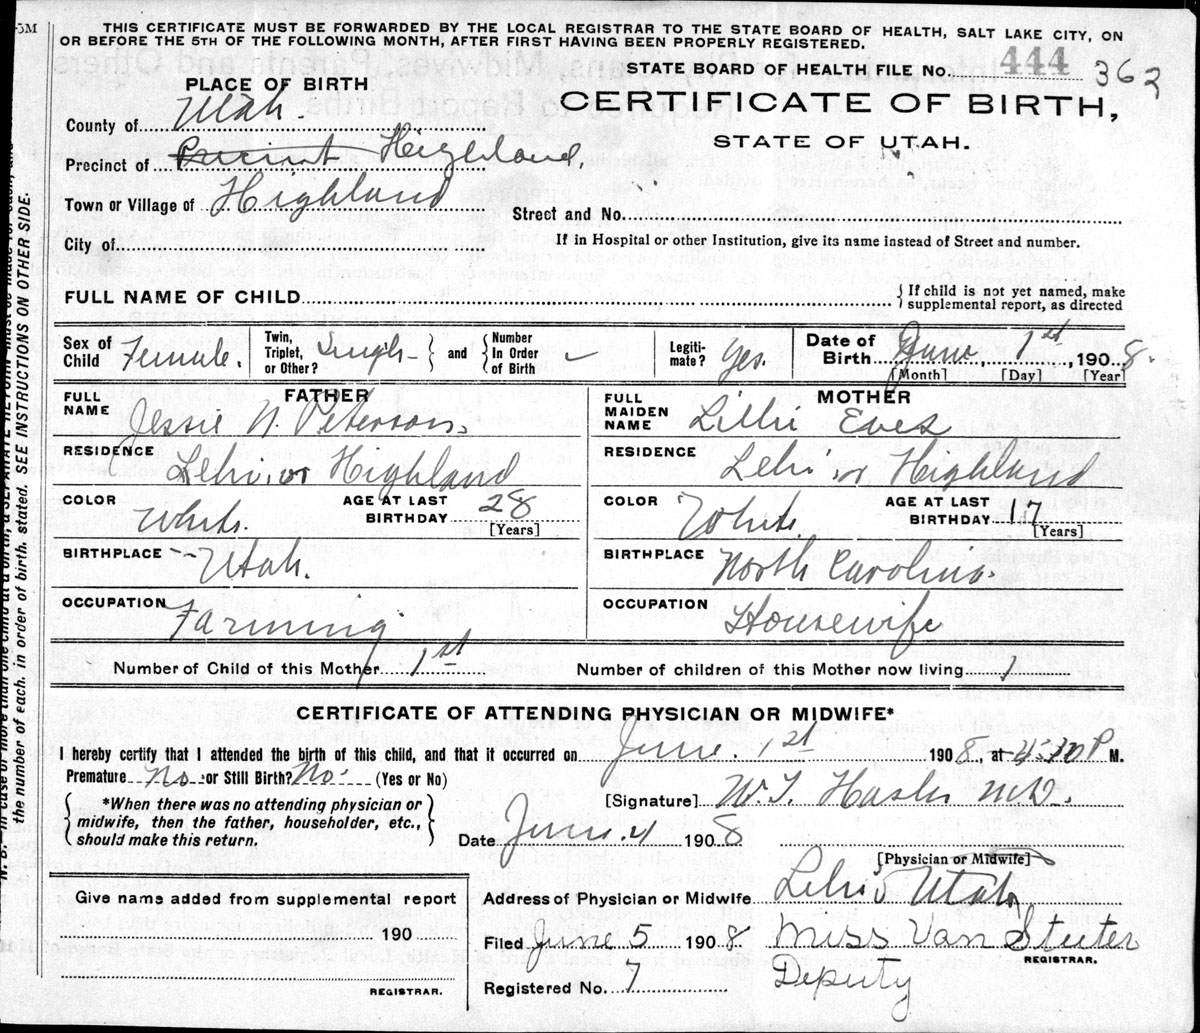 5M THIS CERTIFICATE MUST BE FORWARDED BY THE LOCAL REGISTRAR TO THE STATE BOARD OF HEALTH, SALT LAKE CITY, ON
OR BEFORE THE 5TH OF THE FOLLOWING MONTH, AFTER FIRST HAVING BEEN PROPERLY REGISTERED.
STATE BOARD OF HEALTH FILE No. 444 363
PLACE OF BIRTH
CERTIFICATE OF BIRTH,
STATE OF UTAH.
County of Utah.
Precinct of Precinct Highland,
Town or Village of Highland
Street and No.
City of
If in Hospital or other Institution, give its name instead of Street and number.
FULL NAME OF CHILD {If child is not yet named, make
supplemental report, as directed
Sex of Child Female. Twin, Triplet, or Other? Single } and { Number In Order of Birth Legiti-mate? Yes. Date of Birth June 1st, 1908.
[Month] [Day] [Year]
FATHER
FULL NAME Jessie N. Peterson.
RESIDENCE Lehi, or Highland
COLOR White. AGE AT LAST BIRTHDAY 28
[Years]
BIRTHPLACE Utah.
OCCUPATION Farming
MOTHER
FULL MAIDEN NAME Lillie Eves
RESIDENCE Lehi or Highland
COLOR White AGE AT LAST BIRTHDAY 17
[Years]
BIRTHPLACE North Carolina.
OCCUPATION Housewife
Number of Child of this Mother 1st Number of children of this Mother now living 1
CERTIFICATE OF ATTENDING PHYSICIAN OR MIDWIFE*
I hereby certify that I attended the birth of this child, and that it occurred on June. 1st 1908, at P M.
Premature No or Still Birth? No. (Yes or No)
{*When there was no attending physician or
midwife, then the father, householder, etc.,
should make this return.}
[Signature] W. T. M.D.
Date June. 4 1908
[Physician or Midwife]
Address of Physician or Midwife Lehi, Utah
Filed June 5 1908 Miss Van Steeter
REGISTRAR.
Registered No. 7 Deputy
Give name added from supplemental report
190
REGISTRAR.
the number of each, in order of birth, stated. SEE INSTRUCTIONS ON OTHER SIDE.